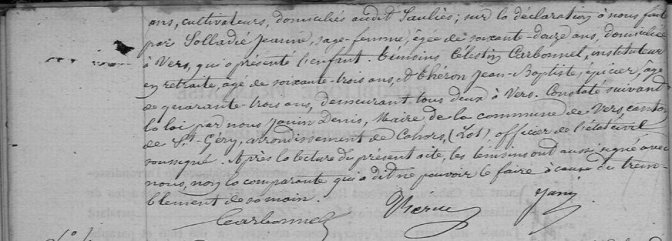 ans, cultivateurs, domiciliés audit Sauliès; sur la déclaration à nous faite
par Solladié Jeanne, sage-femme, âgée de soixante-douze ans, domiciliée
à Vers, qui a présenté l'enfant. Témoins Célestin Carbonnel, instituteur
en retraite, âgé de soixante-trois ans, & Théron Jean-Baptiste, épicier, âgé
de quarante-trois ans, demeurant tous deux à Vers. Constaté suivant
la loi par nous Denis, Maire de la commune de Vers, canton
de St Géry, arrondissement de Cahors, (Lot) officier de l'état civil
soussigné. Après la lecture du présent acte, les témoins ont aussi signé avec
nous, non la comparante qui a dit ne pouvoir le faire à cause du trem-
blement de sa main.
Carbonnel